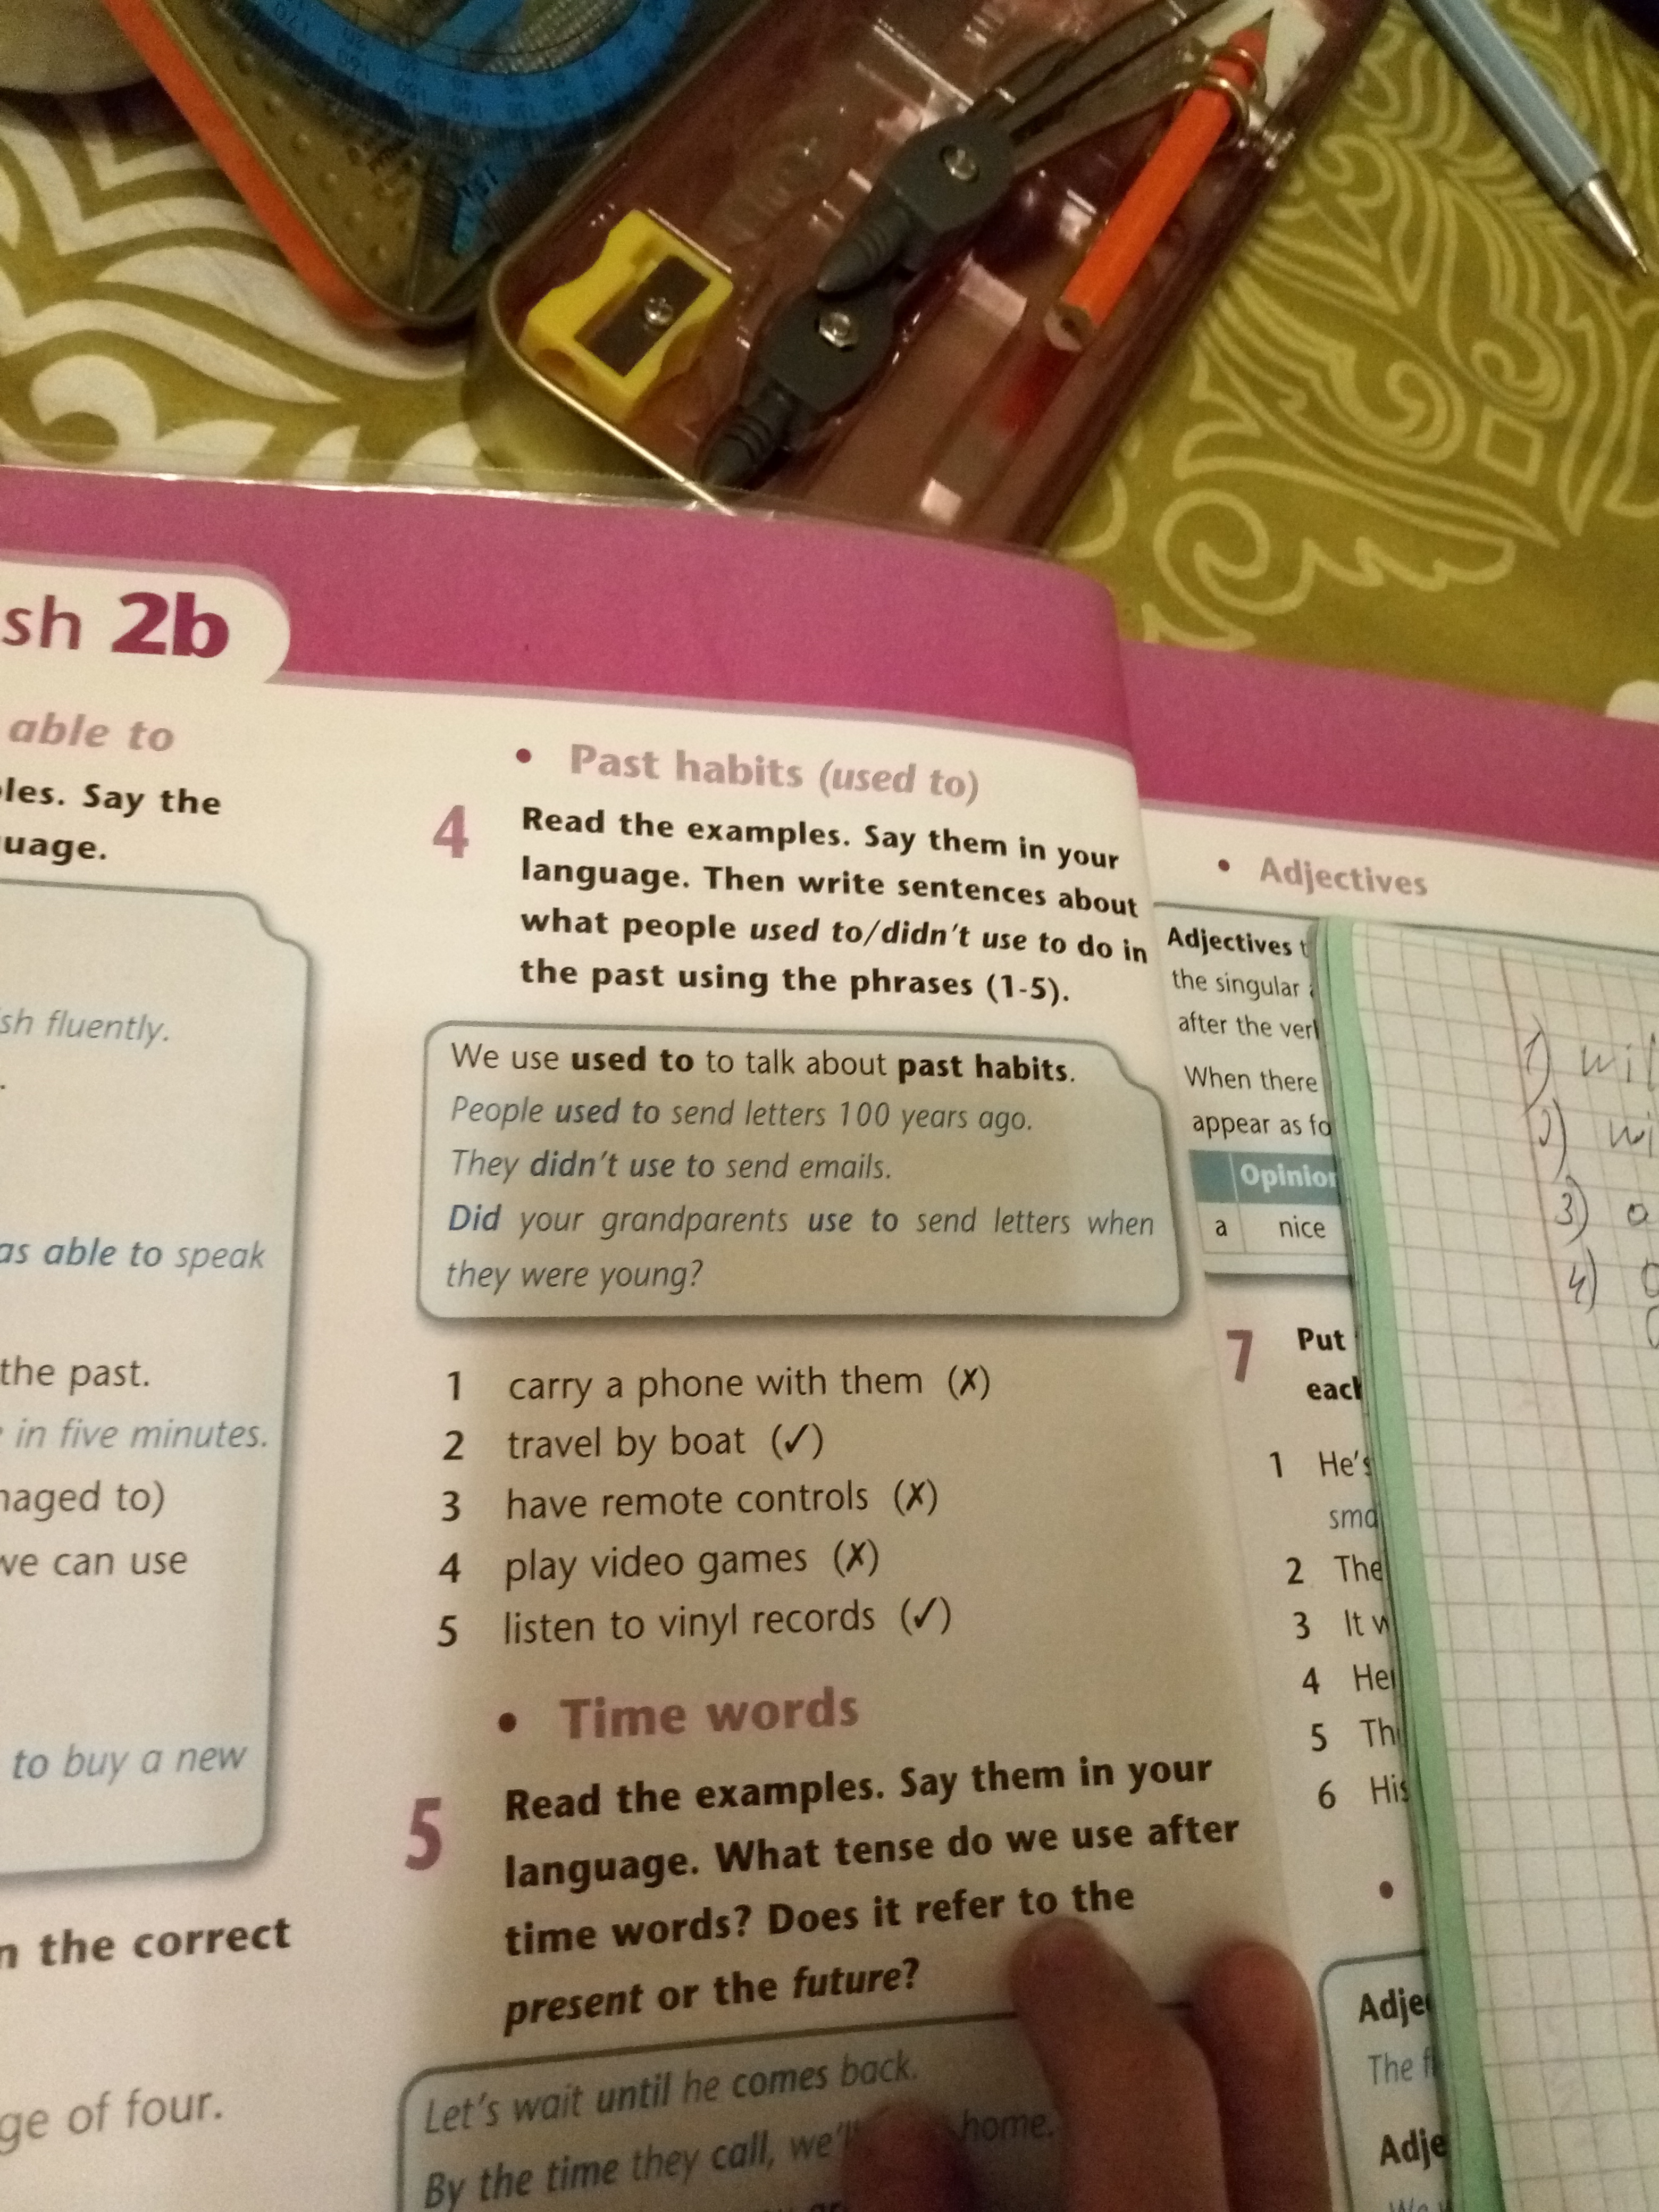 sh 2b
able to
les. Say the
uage.
sh fluently.
as able to speak
the past.
in five minutes.
naged to)
we can use
to buy a new
n the correct
ge of four.
• Past habits (used to)
4 Read the examples. Say them in your
language. Then write sentences about
what people used to/didn't use to do in
the past using the phrases (1-5).
We use used to to talk about past habits.
People used to send letters 100 years ago.
They didn't use to send emails.
Did your grandparents use to send letters when
they were young?
1 carry a phone with them (✗)
2 travel by boat (✓)
3 have remote controls (✗)
4 play video games (✗)
5 listen to vinyl records (✓)
• Time words
5 Read the examples. Say them in your
language. What tense do we use after
time words? Does it refer to the
present or the future?
Let's wait until he comes back.
By the time they call, we'll home.
• Adjectives
Adjectives t
the singular
after the ver
When there
appear as fo
Opinion
a nice
7 Put
each
1 He's
sma
2 The
3 It w
4 Her
5 Th
6 His
•
Adje
The f
Adje
We
1) wil
2) wi
3) a
4)